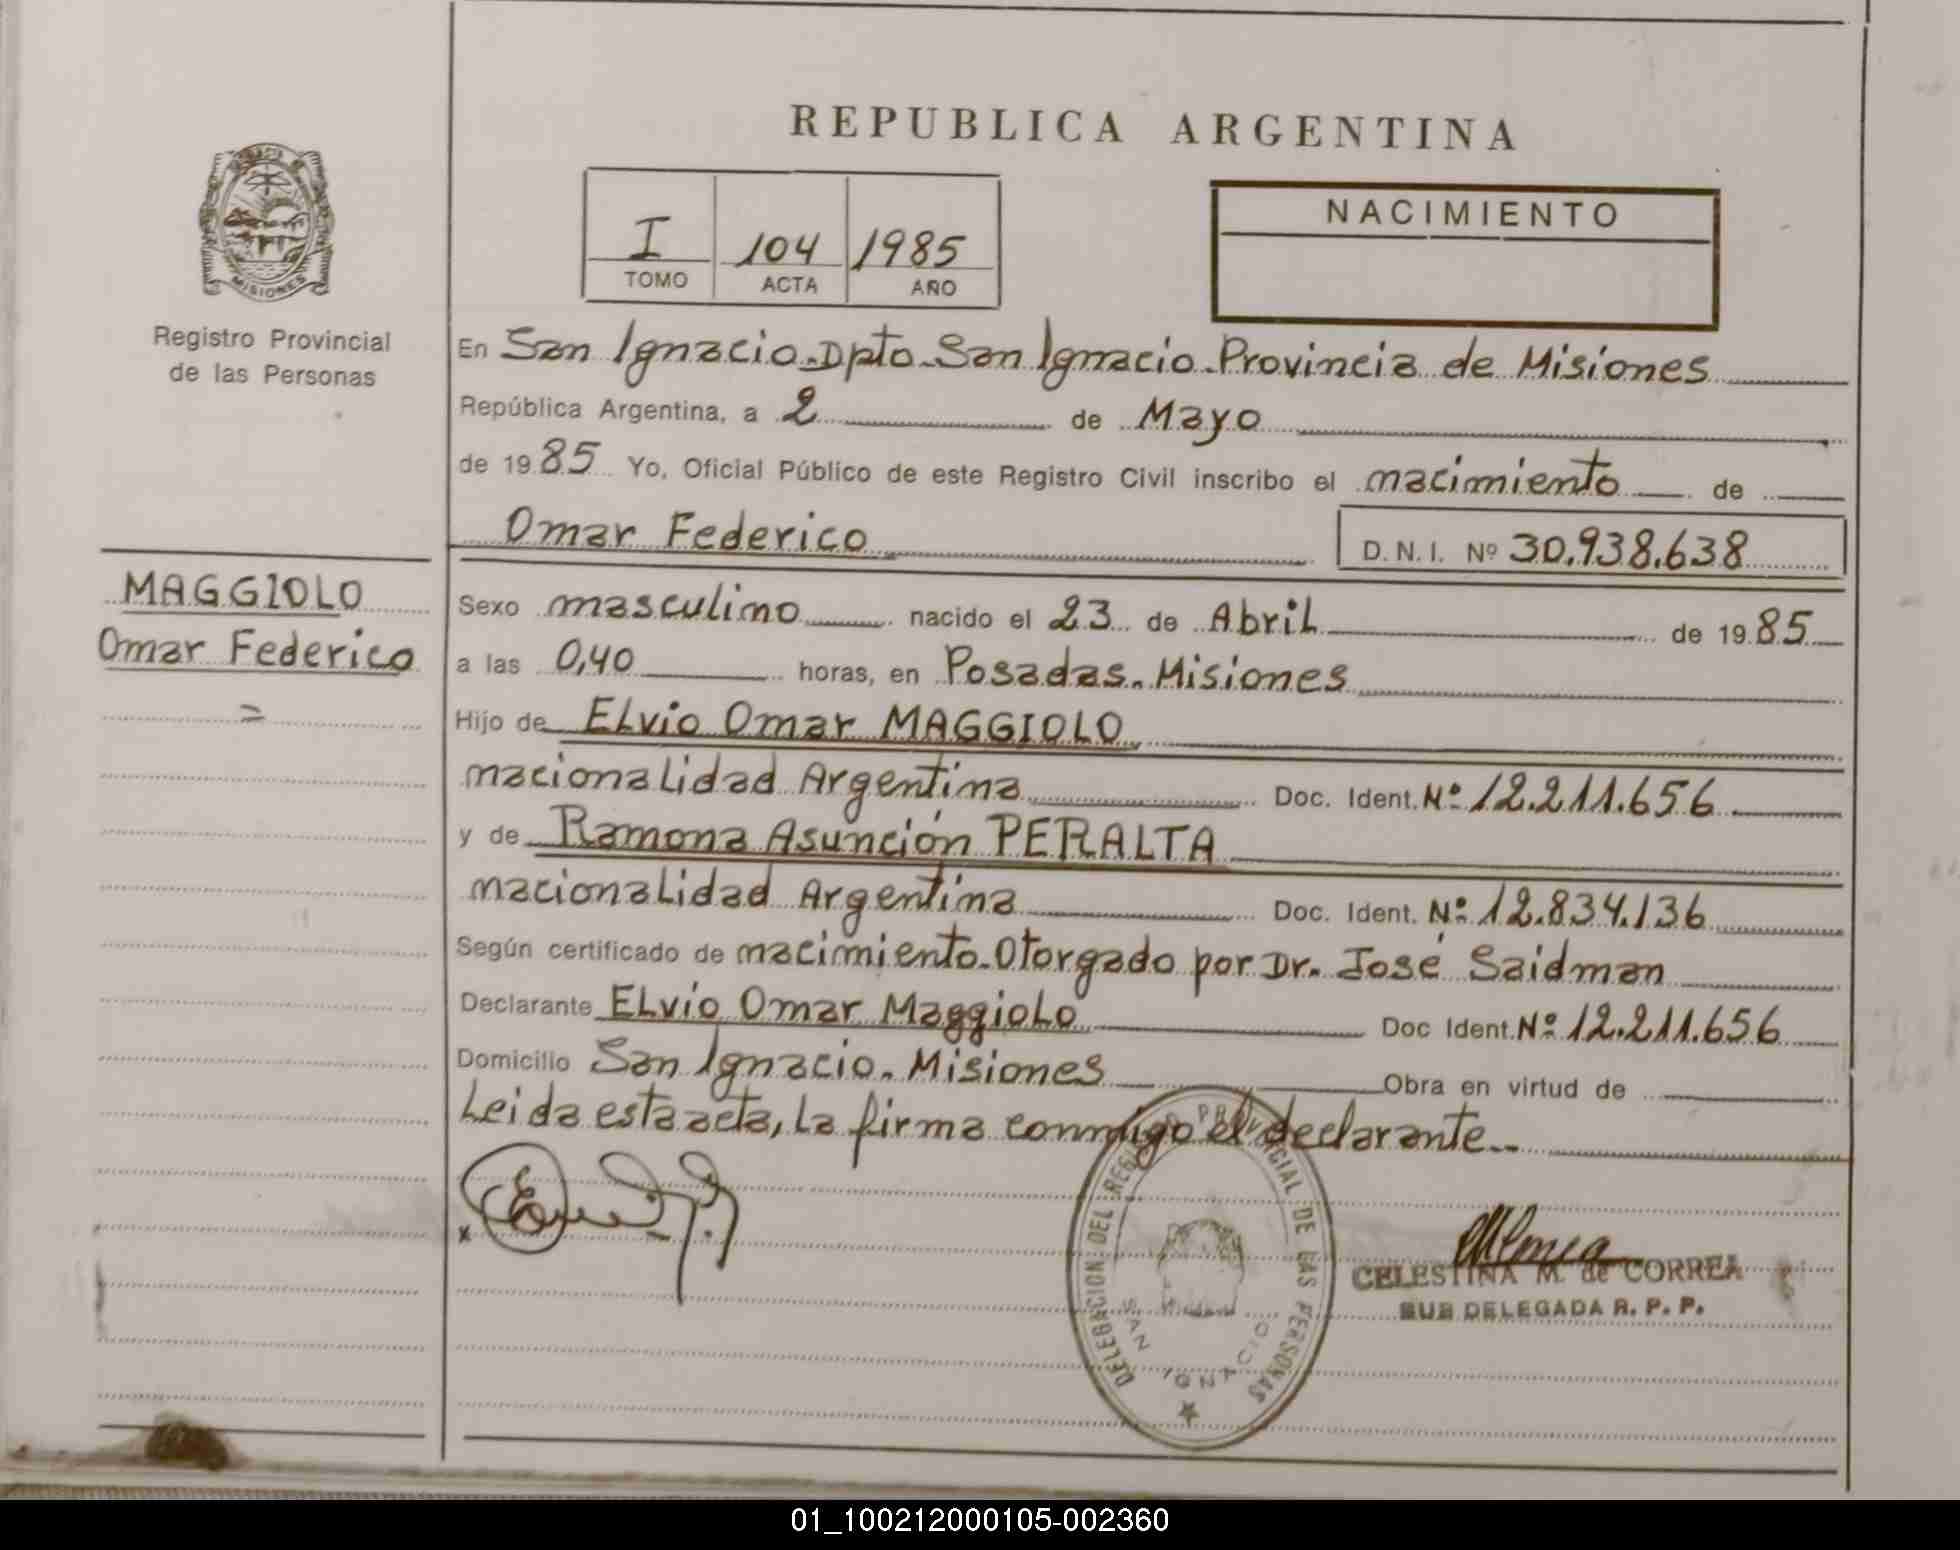 REPUBLICA ARGENTINA
MISIONES
Registro Provincial
de las Personas
I 104 1985
TOMO ACTA AÑO
NACIMIENTO
En San Ignacio.Dpto.San Ignacio.Provincia de Misiones
República Argentina, a 2 de Mayo
de 1985 Yo, Oficial Público de este Registro Civil inscribo el nacimiento de
Omar Federico D.N.I. Nº 30.938.638
MAGGIOLO
Omar Federico
Sexo masculino nacido el 23 de Abril de 1985
a las 0,40 horas, en Posadas. Misiones
Hijo de Elvio Omar MAGGIOLO
nacionalidad Argentina Doc. Ident. Nº 12.211.656
y de Ramona Asunción PERALTA
nacionalidad Argentina Doc. Ident. Nº 12.834.136
Según certificado de nacimiento.Otorgado por Dr. José Saidman
Declarante Elvio Omar Maggiolo Doc Ident. Nº 12.211.656
Domicilio San Ignacio. Misiones Obra en virtud de
Leida esta acta, la firma conmigo el declarante..
DELEGACION DEL REGISTRO PROVINCIAL DE LAS PERSONAS
SAN IGNACIO
CELESTINA M. de CORREA
SUB DELEGADA R. P. P.
01_100212000105-002360